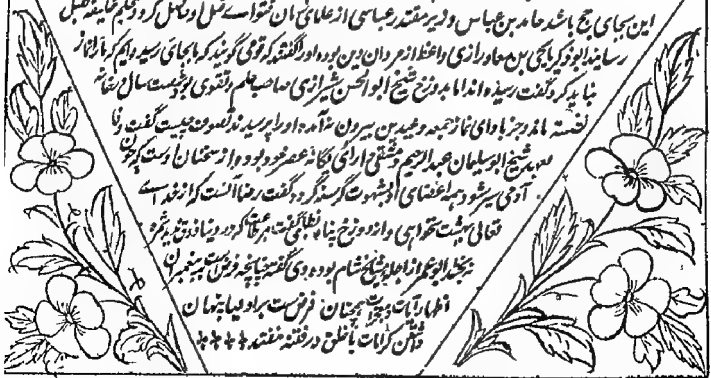 این بجای حج باشد حامد بن عباس وزیر مقتدر عباسی از علمای آن فتوای قتل او حاصل کرد و بحکم خلیفه بقتل
رسانید ابو زکریا یحیی بن معاذ رازی واعظ از مردان دین بوده او را گفتند که قومی گویند که ما بجای رسیده ایم که ما را نماز
نباید کرد گفت رسیده اند اما بدوزخ شیخ ابو الحسن شیرازی صاحب علم و تقوی بود شصت سال بخانه
نشسته ماند و جز بادای نماز جمعه و عیدین بیرون نه آمده او را پرسیدند تصوف چیست گفت وفا
بعهد شیخ ابو سلیمان عبد الرحیم دمشقی دارائی یگانه عصر خود بود و از سخنان اوست که چون
آدمی سیر شود همه اعضای او بشهوت گرسنه گردد گفت رضا آنست که از خدای
تعالی بهشت نخواهی و از دوزخ پناه نطلبی گفت هر که در دنیا
ابو عمر از اجله مشایخ شام بوده وی گفته چنانچه فرض ست پیغمبران
اظهار آیات و معجزات همچنان فرض ست بر اولیا پنهان
داشتن کرامات تا خلق در فتنه نیفتند